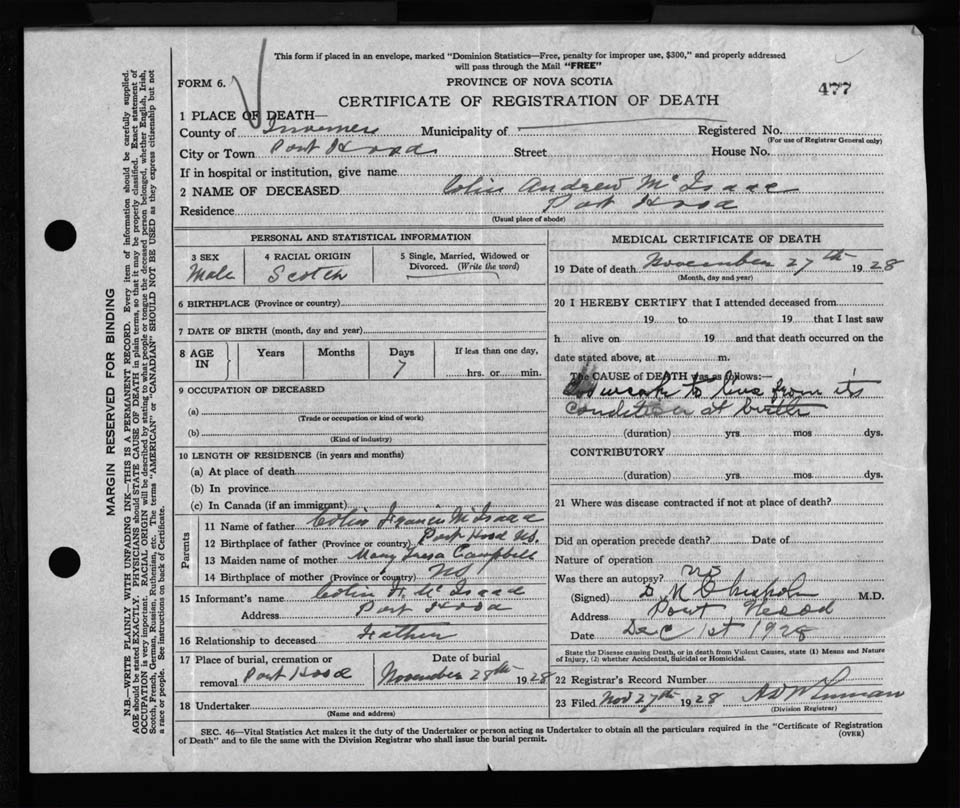 This form if placed in an envelope, marked "Dominion Statistics—Free, penalty for improper use, $300," and properly addressed
will pass through the Mail "FREE"
FORM 6.
PROVINCE OF NOVA SCOTIA
477
CERTIFICATE OF REGISTRATION OF DEATH
1 PLACE OF DEATH—
County of Inverness Municipality of Registered No.
(For use of Registrar General only)
City or Town Port Hood Street House No.
If in hospital or institution, give name
2 NAME OF DECEASED Colin Andrew McIsaac
Residence Port Hood
(Usual place of abode)
PERSONAL AND STATISTICAL INFORMATION
3 SEX
Male
4 RACIAL ORIGIN
Scotch
5 Single, Married, Widowed or
Divorced. (Write the word)
6 BIRTHPLACE (Province or country)
7 DATE OF BIRTH (month, day and year)
8 AGE
IN
Years
Months
Days
7
If less than one day,
hrs. or min.
9 OCCUPATION OF DECEASED
(a)
(Trade or occupation or kind of work)
(b)
(Kind of industry)
10 LENGTH OF RESIDENCE (in years and months)
(a) At place of death
(b) In province
(c) In Canada (if an immigrant)
Parents
11 Name of father Colin Francis McIsaac
12 Birthplace of father (Province or country) Port Hood NS.
13 Maiden name of mother Mary Tresa Campbell
14 Birthplace of mother (Province or country) NS
15 Informant's name Colin F. McIsaac
Address Port Hood
16 Relationship to deceased Father
17 Place of burial, cremation or
removal Port Hood
Date of burial
November 28th 1928
18 Undertaker
(Name and address)
MEDICAL CERTIFICATE OF DEATH
19 Date of death November 27th 1928
(Month, day and year)
20 I HEREBY CERTIFY that I attended deceased from
19 to 19 that I last saw
h alive on 19 and that death occurred on the
date stated above, at m.
The CAUSE of DEATH was as follows:—
weak to live from its
condition at birth
(duration) yrs mos dys.
CONTRIBUTORY
(duration) yrs. mos. dys.
21 Where was disease contracted if not at place of death?
Did an operation precede death? Date of
Nature of operation
Was there an autopsy? no
(Signed) Chisholm M.D.
Address Port Hood
Date Dec 1st 1928
State the Disease causing Death, or in death from Violent Causes, state (1) Means and Nature
of Injury, (2) whether Accidental, Suicidal or Homicidal.
22 Registrar's Record Number
23 Filed Nov 27th 1928
(Division Registrar)
SEC. 46—Vital Statistics Act makes it the duty of the Undertaker or person acting as Undertaker to obtain all the particulars required in the "Certificate of Registration
of Death" and to file the same with the Division Registrar who shall issue the burial permit.
(OVER)
MARGIN RESERVED FOR BINDING
N.B.—WRITE PLAINLY WITH UNFADING INK—THIS IS A PERMANENT RECORD. Every item of information should be carefully supplied.
AGE should be stated EXACTLY. PHYSICIANS should STATE CAUSE OF DEATH in plain terms, so that it may be properly classified. Exact statement of
OCCUPATION is very important. RACIAL ORIGIN will be described by stating to what people or tongue the deceased person belonged, whether English, Irish,
Scotch, French, German, Russian, Ruthenian, etc. The terms "AMERICAN" or "CANADIAN" SHOULD NOT BE USED as they express citizenship but not
a race or people. See instructions on back of Certificate.